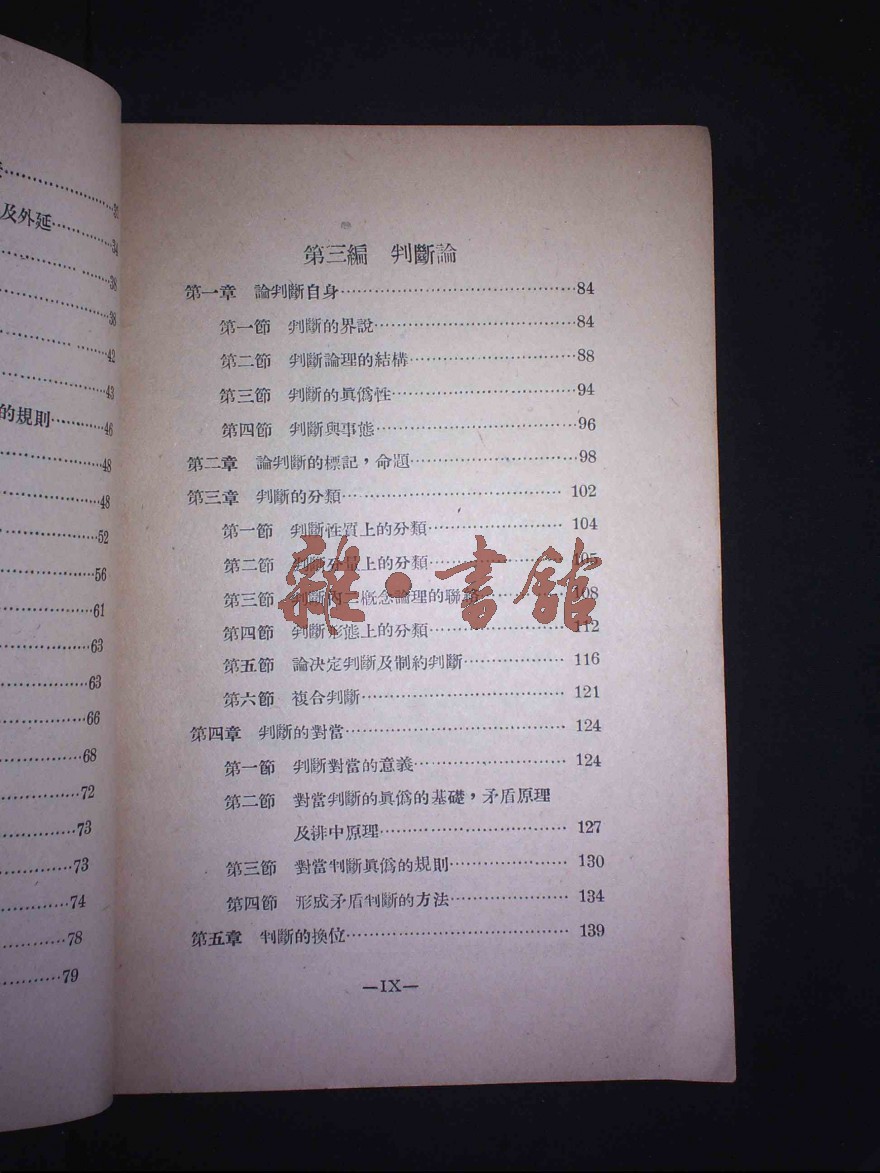 及外延……34
38
38
42
43
的規則……46
48
48
52
56
61
63
63
66
68
72
73
73
74
78
79
第三編 判斷論
第一章 論判斷自身……84
第一節 判斷的界說……84
第二節 判斷論理的結構……88
第三節 判斷的眞僞性……94
第四節 判斷與事態……96
第二章 論判斷的標記，命題……98
第三章 判斷的分類……102
第一節 判斷性質上的分類……104
第二節 判斷分量上的分類……105
第三節 判斷內二概念論理的聯……108
第四節 判斷形態上的分類……112
第五節 論決定判斷及制約判斷……116
第六節 複合判斷……121
第四章 判斷的對當……124
第一節 判斷對當的意義……124
第二節 對當判斷的眞僞的基礎，矛盾原理
及排中原理……127
第三節 對當判斷眞僞的規則……130
第四節 形成矛盾判斷的方法……134
第五章 判斷的換位……139
—IX—
雜·書館